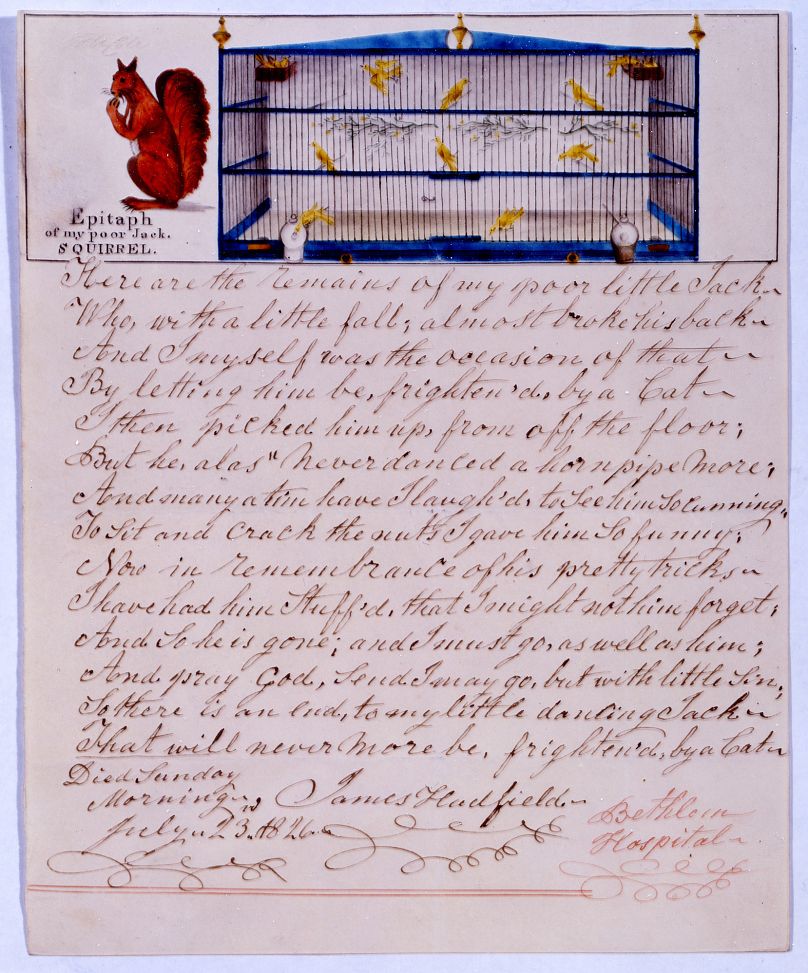 Epitaph
of my poor Jack.
SQUIRREL.
Here are the remains of my poor little Jack
Who, with a little fall; almost broke his back
And I myself was the occasion of that
By letting him be, frighten'd, by a Cat
I then picked him up, from off, the floor;
But he, alas" never danced a hornpipe more;
And many a time have I laugh'd, to see him so cunning,
To sit and crack the nuts I gave him so funny;
Now in remembrance of his pretty tricks
I have had him Stuff'd, that I might not him forget;
And So he is gone; and I must go, as well as him;
And pray God, Send I may go, but with little Sin;
So there is an end, to my little dancing Jack
That will never more be, frighten'd, by a Cat
Died Sunday
Morning James Hadfield
July 23. 1826
Bethlem
Hospital